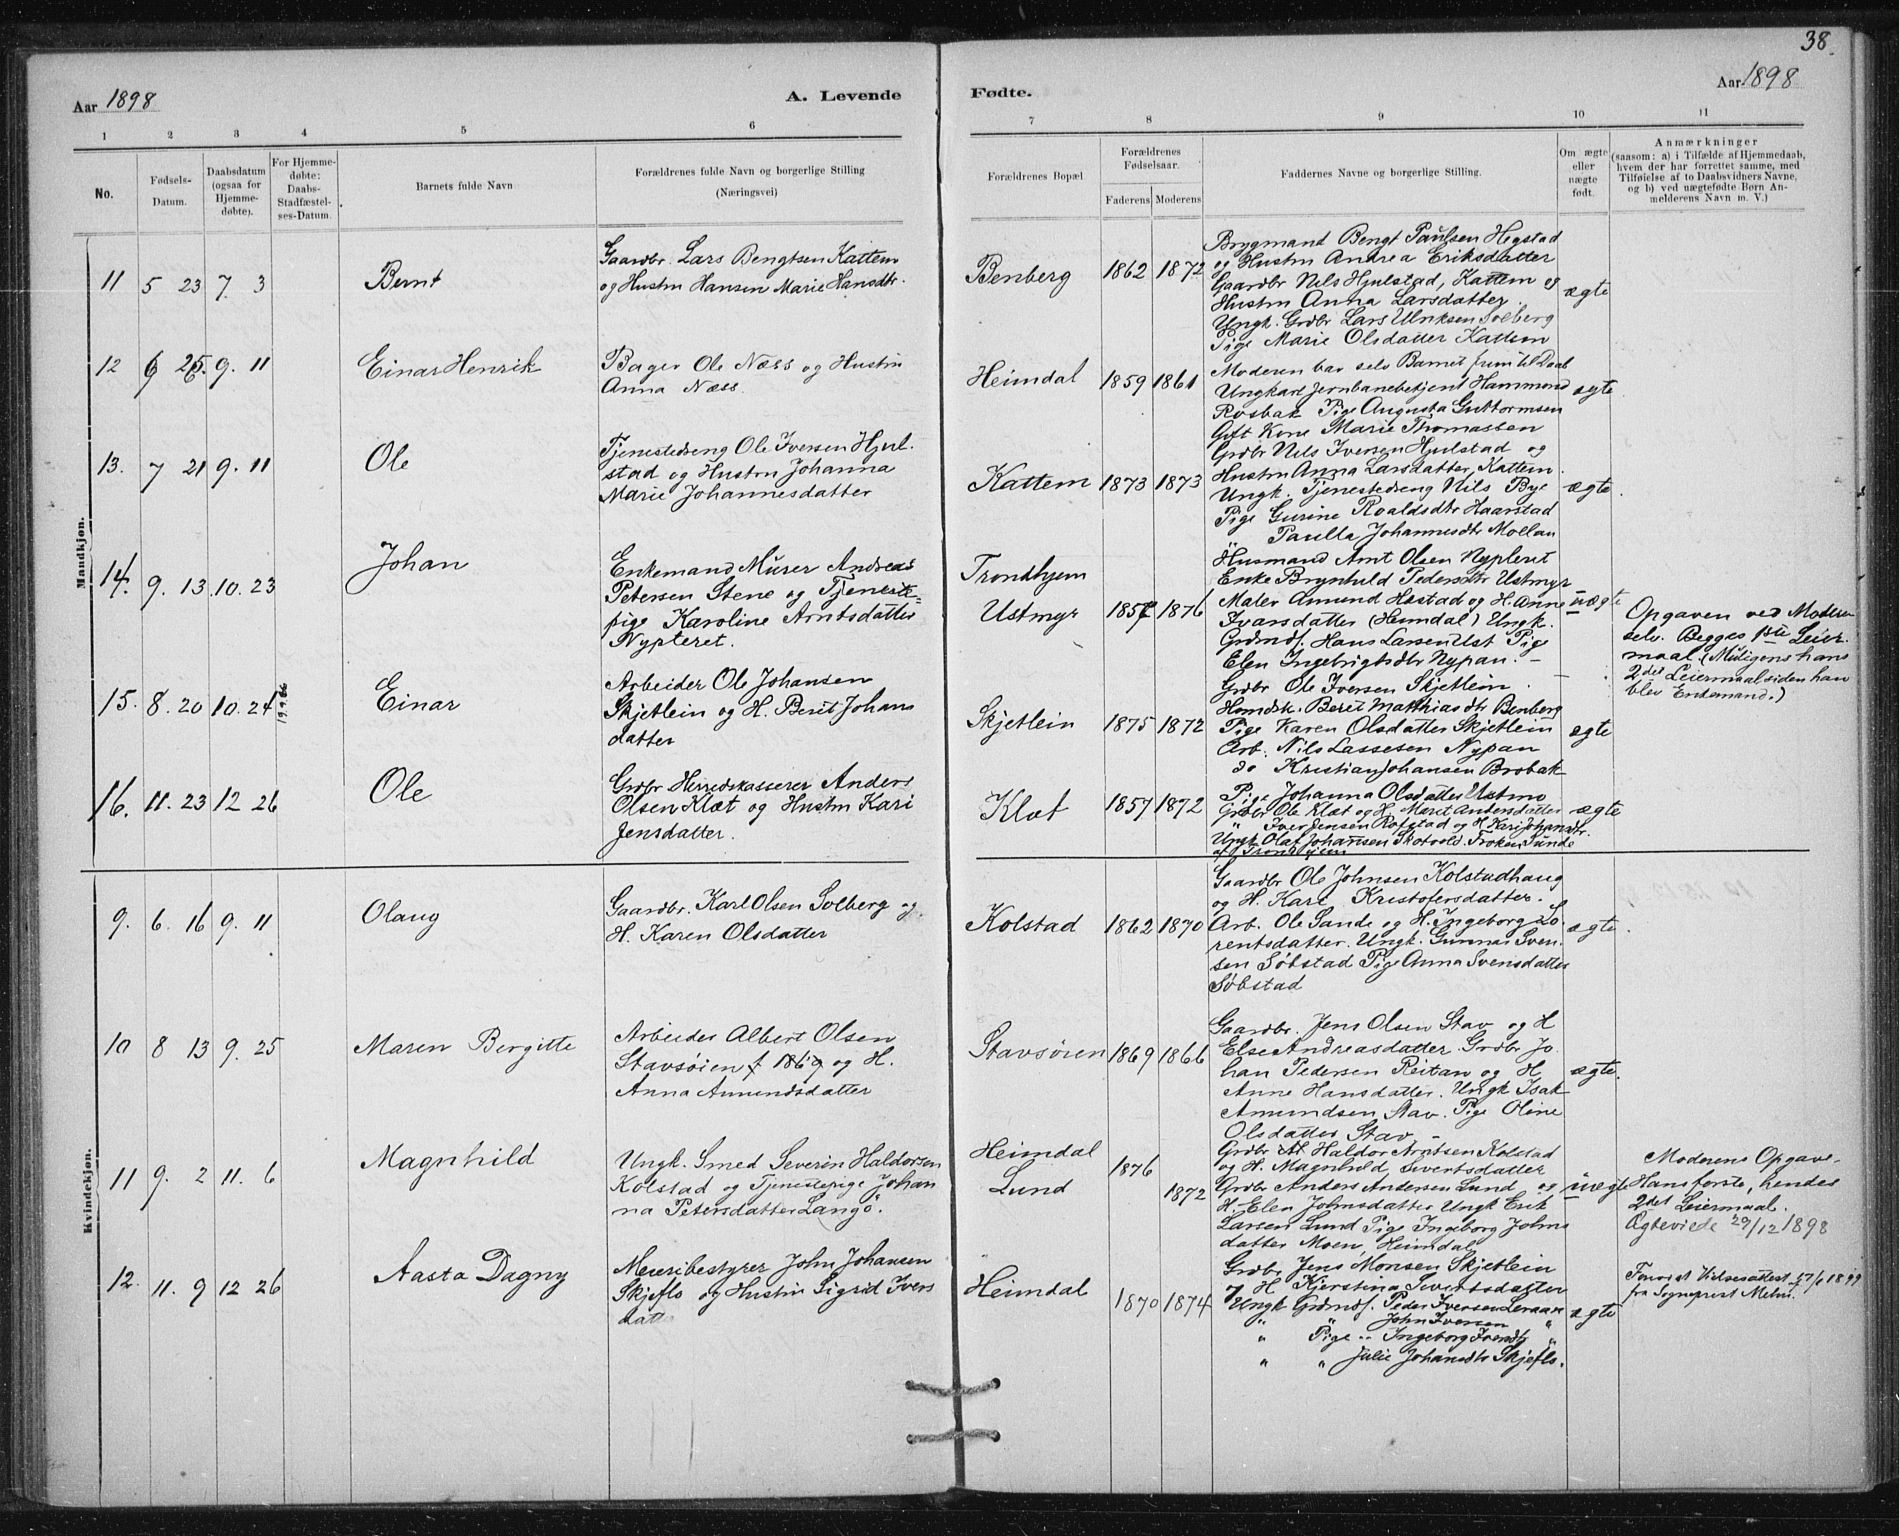 38.
Aar 1898
A. Levende
Fødte.
Aar 1898
1 2 3 4 5 6 7 8 9 10 11
No.
Fødsels-
Datum.
Daabsdatum
(ogsaa for
Hjemme-
døbte).
For Hjemme-
døbte:
Daabs-
Stadfæstel-
ses-Datum.
Barnets fulde Navn
Forældrenes fulde Navn og borgerlige Stilling
(Næringsvei)
Forældrenes Bopæl
Forældrenes
Fødselsaar.
Faderens Moderens
Faddernes Navne og borgerlige Stilling.
Om ægte
eller
uægte
født.
Anmærkninger
(saasom: a) i Tilfælde af Hjemmedaab,
hvem der har forrettet samme, med
Tilføielse af to Daabsvidners Navne,
og b) ved uægtefødte Børn An-
melderens Navn m. V.)
Mandkjøn.
11 5 23 7. 3 Bernt
Gaardbr. Lars Bengtsen Kattem
og Hustru Hansen Marie Hansdtr.
Benberg 1862 1872
Brygmand Bengt Paulsen Hegstad
og Hustru Andrea Eriksdatter
Gaardbr Nils Hjulstad, Kattem og
Hustru Anna Larsdatter
Ungk. Grdbr Lars Ulriksen Solberg
Pige Marie Olsdatter Kattem
ægte
12 6 25. 9. 11 Einar Henrik
Bager Ole Næss og Hustru
Anna Næss
Heimdal 1859 1861
Moderen bar selv Barnet frem til Daab
Ungkarl Jernbanebetjent Hammond
Rosbak Pige Augusta Guttormsen
Gift Kone Marie Thomassen
ægte
13. 7 21 9. 11 Ole
Tjenestedreng Ole Iversen Hjul-
stad og Hustru Johanna
Marie Johannesdatter
Kattem 1873 1873
Grdbr Nils Iversen Hjulstad og
Hustru Anna Larsdatter, Kattem.
Ungk. Tjenestedreng Nils Bye
Pige Gurine Roaldsdtr Haarstad
" Paulla Johannesdtr Mollan
ægte
14. 9. 13 10. 23 Johan
Enkemand Murer Andreas
Petersen Stene og Tjeneste-
pige Karoline Arntsdatter
Nypteret.
Trondhjem
Ustmyr 1857 1876
Husmand Arnt Olsen Nypteret
Enke Brynhild Pedersdtr Ustmyr
Maler Amund Hostad og H. Anne
Ivarsdatter (Heimdal) Ungk.
Grdmds. Hans Larsen Ust Pige
Elen Ingebrigtsdtr Nypan. –
uægte
Opgaven ved Moderen
selv. Begges 1ste Leier-
maal. (Muligens hans
2det Leiermaal siden han
blev Enkemand.)
15. 8. 20 10. 24 Einar
Arbeider Ole Johansen
Skjetlein og H. Beret Johans
datter
Skjetlein 1875 1872
Grdbr Ole Iversen Skjetlein.
Homdsk. Beret Matthiasdtr Benberg
Pige Karen Olsdatter Skjetlein
Arb. Nils Lassesen Nypan
do Kristian Johansen Brobak
Pige Johanna Olsdatter Ustmo
ægte
16. 11. 23 12 26 Ole
Grdbr Herredskasserer Anders
Olsen Klæt og Hustru Kari
Jensdatter.
Klæt 1857 1872
Grdbr Ole Klæt og H. Marit Andersdatter
" Iver Jensen Rofstad og H. Kari Johansdtr.
Ungk Olaf Johansen Skotvold. Frøken Sunde
af Trondhjem
ægte
Kvindekjøn.
9. 6. 16 9. 11 Olaug
Gaardbr. Karl Olsen Solberg og
H. Karen Olsdatter
Kolstad 1862 1870
Gaardbr Ole Johnsen Kolstadhaug
og H. Kari Kristofersdatter.
Arb. Ole Sande og H. Ingeborg Lo-
rentsdatter. Ungk. Gunnar Sven-
sen Søbstad Pige Anna Svensdatter
Søbstad
ægte.
10 8 13 9. 25 Maren Bergitte
Arbeider Albert Olsen
Stavsøien f 1869 og H.
Anna Amundsdatter
Stavsøien 1869 1866
Gaardbr. Jens Olsen Stav og H
Else Andreasdatter. Grdbr Jo-
han Pedersen Reitan og H
Anne Hansdatter. Ungk Isak
Amundsen Stav. Pige Oline
Olsdatter Stav –
ægte.
11 9. 2 11. 6 Magnhild
Ungk. Smed Severin Haldorsen
Kolstad og Tjenestepige Johan
na Petersdatter Langø.
Heimdal
Lund
1876
1872
Grdbr Haldor Arntsen Kolstad
og H. Magnhild Sivertsdatter
Grdbr Anders Andersen Lund og
H. Elen Johnsdatter Ungk Erik
Larsen Lund Pige Ingeborg Johns
datter Moen, Heimdal
uægte
Moderens Opgave.
Hans første, hendes
2det Leiermaal.
Ægteviede 29/12 1898
12. 11. 9 12 26 Aasta Dagny
Meieribestyrer John Johansen
Skjeflo og Hustru Sigrid Ivers
datter
Heimdal 1870 1874
Grdbr Jens Monsen Skjetlein
og H Kjerstina Sivertsdatter
Ungk Grdmds. Peder Iversen Leraan
" " John Iversen "
" Pige Ingeborg Iversdtr "
" " Julie Johansdtr Skjeflo.
ægte
Forevist Vielsesattest
fra Sogneprest